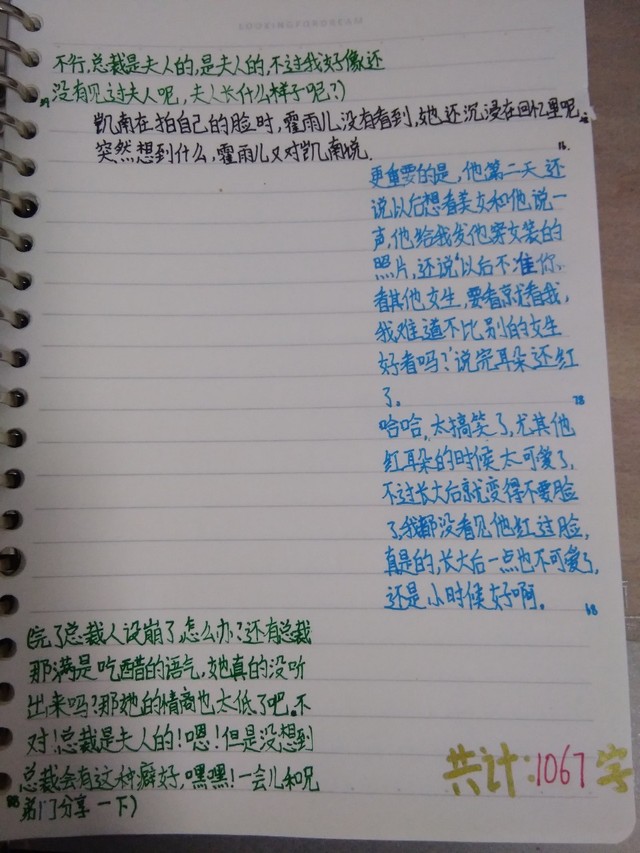 LOOKINGFORDREAM
不行，总裁是夫人的，是夫人的，不过我好像还
没有见过夫人呢，夫人长什么样子呢？）
凯南在拍自己的脸时，霍雨儿没有看到，她还沉浸在回忆里呢。
突然想到什么，霍雨儿又对凯南说。
更重要的是，他第二天还
说以后想看美女和他说一
声，他给我发他穿女装的
照片，还说'以后不准你
看其他女生，要看就看我，
我难道不比别的女生
好看吗？'说完耳朵还红
了。 78
哈哈，太搞笑了，尤其他
红耳朵的时候太可爱了，
不过长大后就变得不要脸
了，我都没看见他红过脸，
真是的，长大后一点也不可爱了，
还是小时候好啊。 68
（完了总裁人设崩了，怎么办？还有总裁
那满是吃醋的语气，她真的没听
出来吗？那她的情商也太低了吧。不
对！总裁是夫人的！嗯！但是没想到
总裁会有这种癖好，嘿嘿！一会儿和兄
弟门分享一下）
共计：1067字